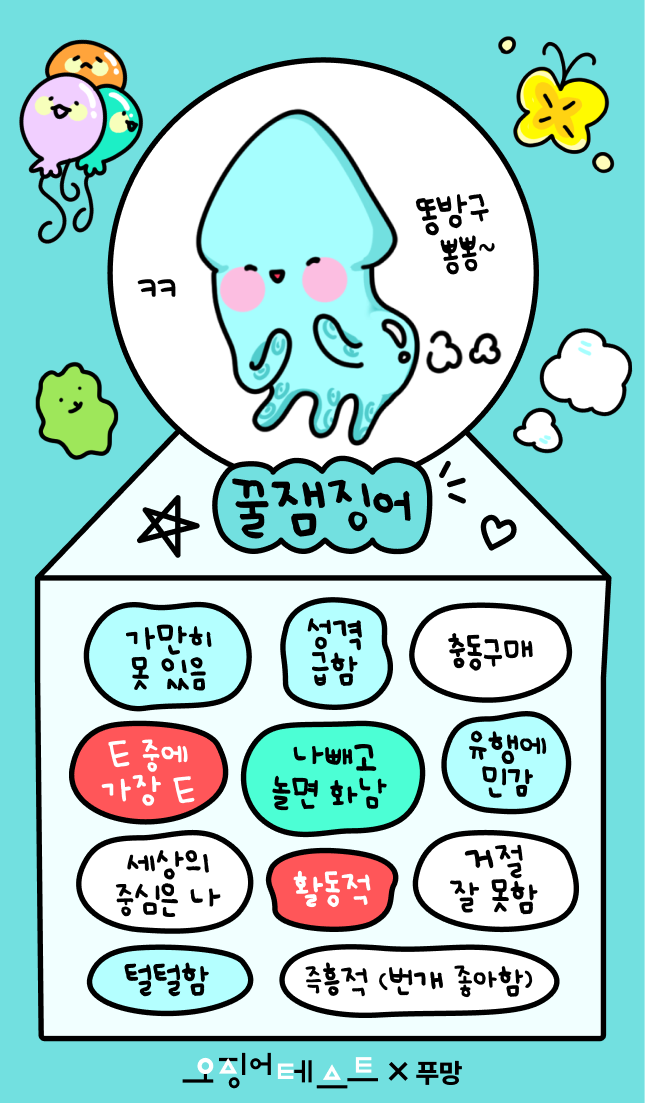 똥방구
뿡뿡~
ㅋㅋ
꿀잼징어
가만히
못 있음
성격
급함
충동구매
E 중에
가장 E
나빼고
놀면 화남
유행에
민감
세상의
중심은 나
활동적
거절
잘 못함
털털함
즉흥적 (번개 좋아함)
오징어테스트 × 푸망